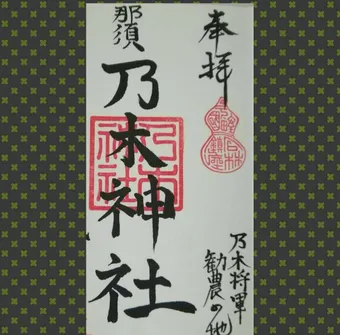 奉拝
那須
乃木神社
乃木神社
乃木将軍
勧農の地